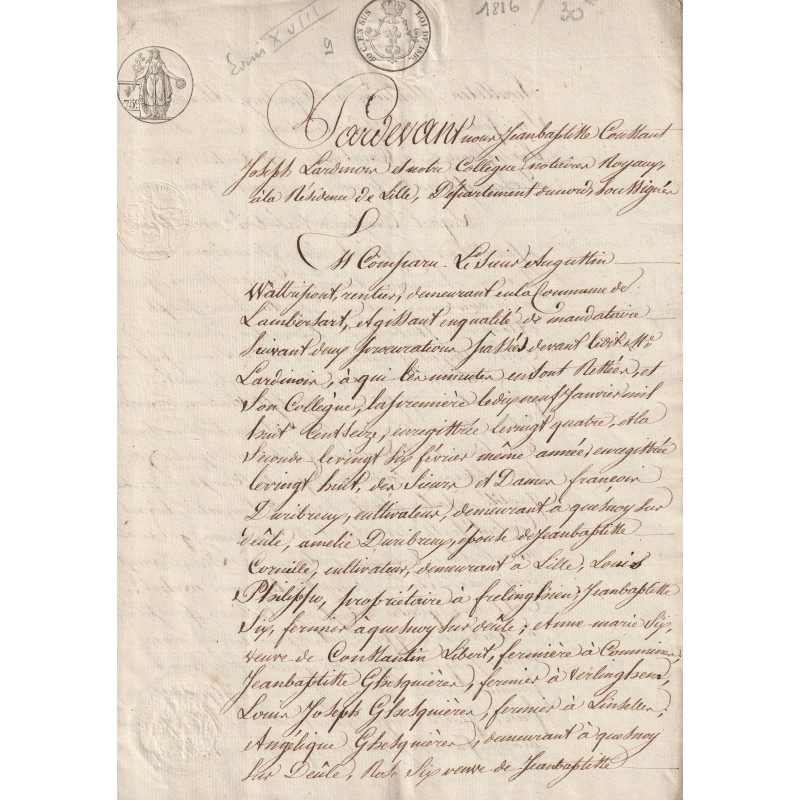 Louis XVIII
9
1816 / 30
50 C. EN SUS
LOI DE 1816
75c.
Pardevant nous Jeanbaptiste Constant
Joseph Lardinois et notre Collègue notaires Royaux,
à la Résidence de Lille, Département du nord, Soussignés
Est Comparu Le Sieur Augustin
Wallripont, rentier, demeurant en la Commune de
Lambersart, agissant en qualité de mandataire
Suivant deux procurations passées devant ledit Me.
Lardinois, à qui les minutes en sont Restées, et
Son Collègue, la première le dix neuf Janvier mil
huit Cent Seize, enregistrée le vingt quatre, et la
Seconde le vingt Six février même année, enregistrée
le vingt huit, des Sieurs et Dames françois
Duribreux, cultivateur, demeurant à quesnoy sur
deûle, amelie Duribreux, épouse de Jeanbaptiste
Cornille, cultivateur, demeurant à Lille, Louis
Philippo, propriétaire à frelinghien, Jeanbaptiste
Six, fermier à quesnoy sur deûle; et anne marie Six,
veuve de Constantin Libert, fermière à Commines,
Jeanbaptiste Ghesquières, fermier à Verlinghem,
Louis Joseph Ghesquières, fermier à Linselles,
Angélique Ghesquières, demeurant à quesnoy
Sur Deûle, Rose Six veuve de Jeanbaptiste